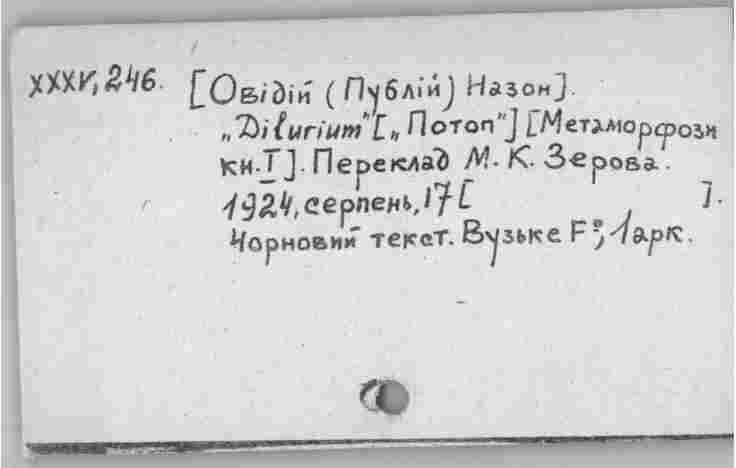 XXXV, 246. [Овідій (Публій) Назон].
„Dilurium" [„Потоп"] [Метаморфози
кн. I]. Переклад М. К. Зерова.
1924, серпень, 17 [ ].
Чорновий текст. Вузьке F°; 1 арк.